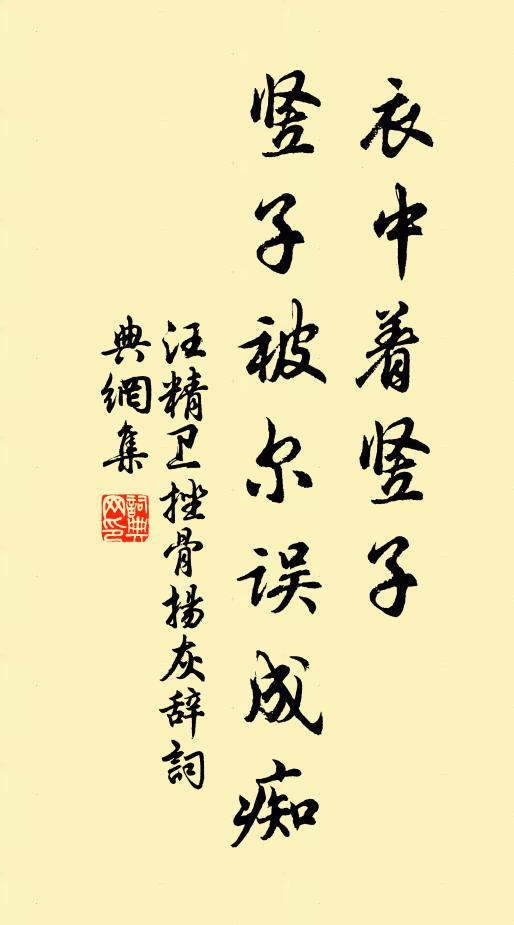 衣中着竖子
竖子被尔误成痴
汪精卫挫骨揚灰辞詞
典網集
詞典网印